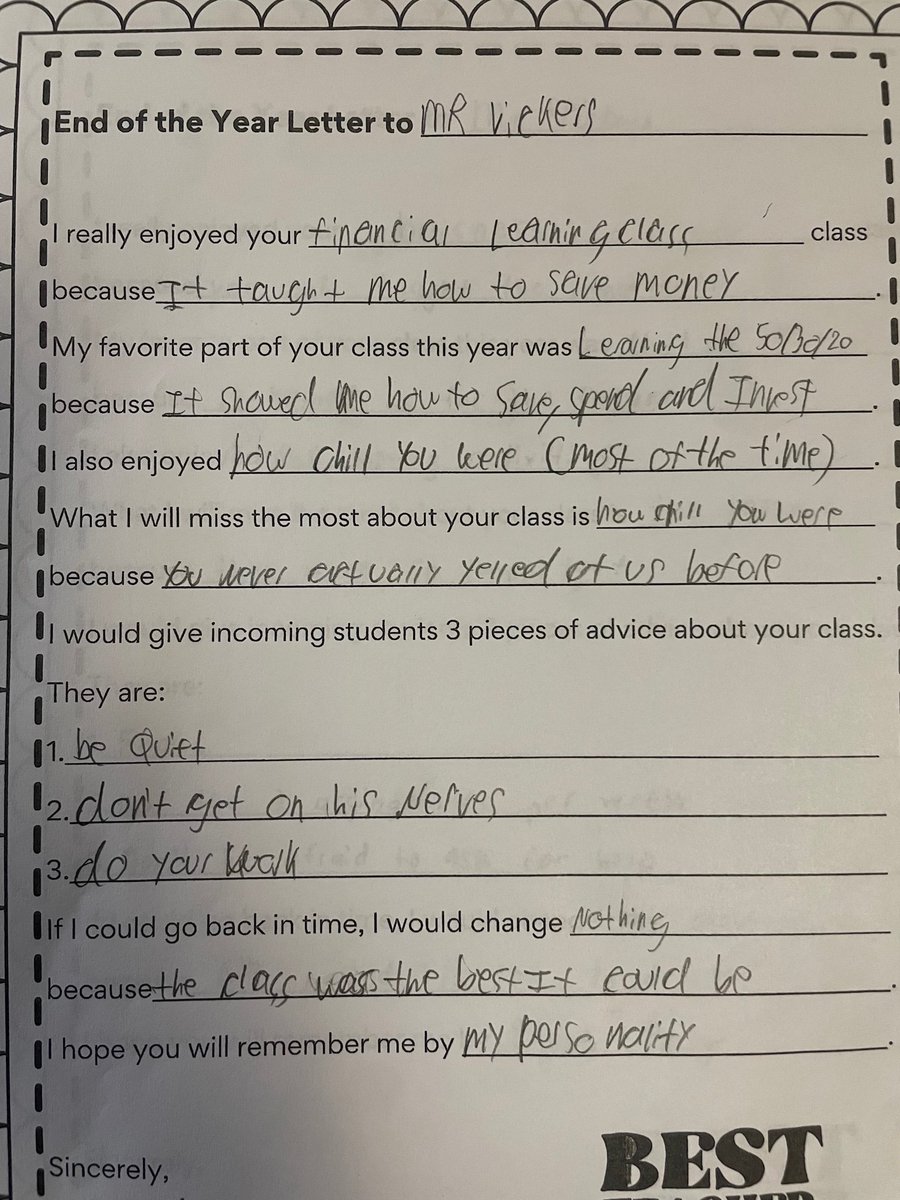 End of the Year Letter to MR Vickers
I really enjoyed your financial Learning class class
because It taught me how to save money.
My favorite part of your class this year was Learning the 50/30/20
because It showed me how to save, spend and Invest.
I also enjoyed how chill You were (most of the time).
What I will miss the most about your class is how chill You were
because You never actually yelled at us before.
I would give incoming students 3 pieces of advice about your class.
They are:
1. be Quiet
2. don't get on his Nerves
3. do your work
If I could go back in time, I would change Nothing
because the class was the best It could be.
I hope you will remember me by my personality.
Sincerely,
BEST